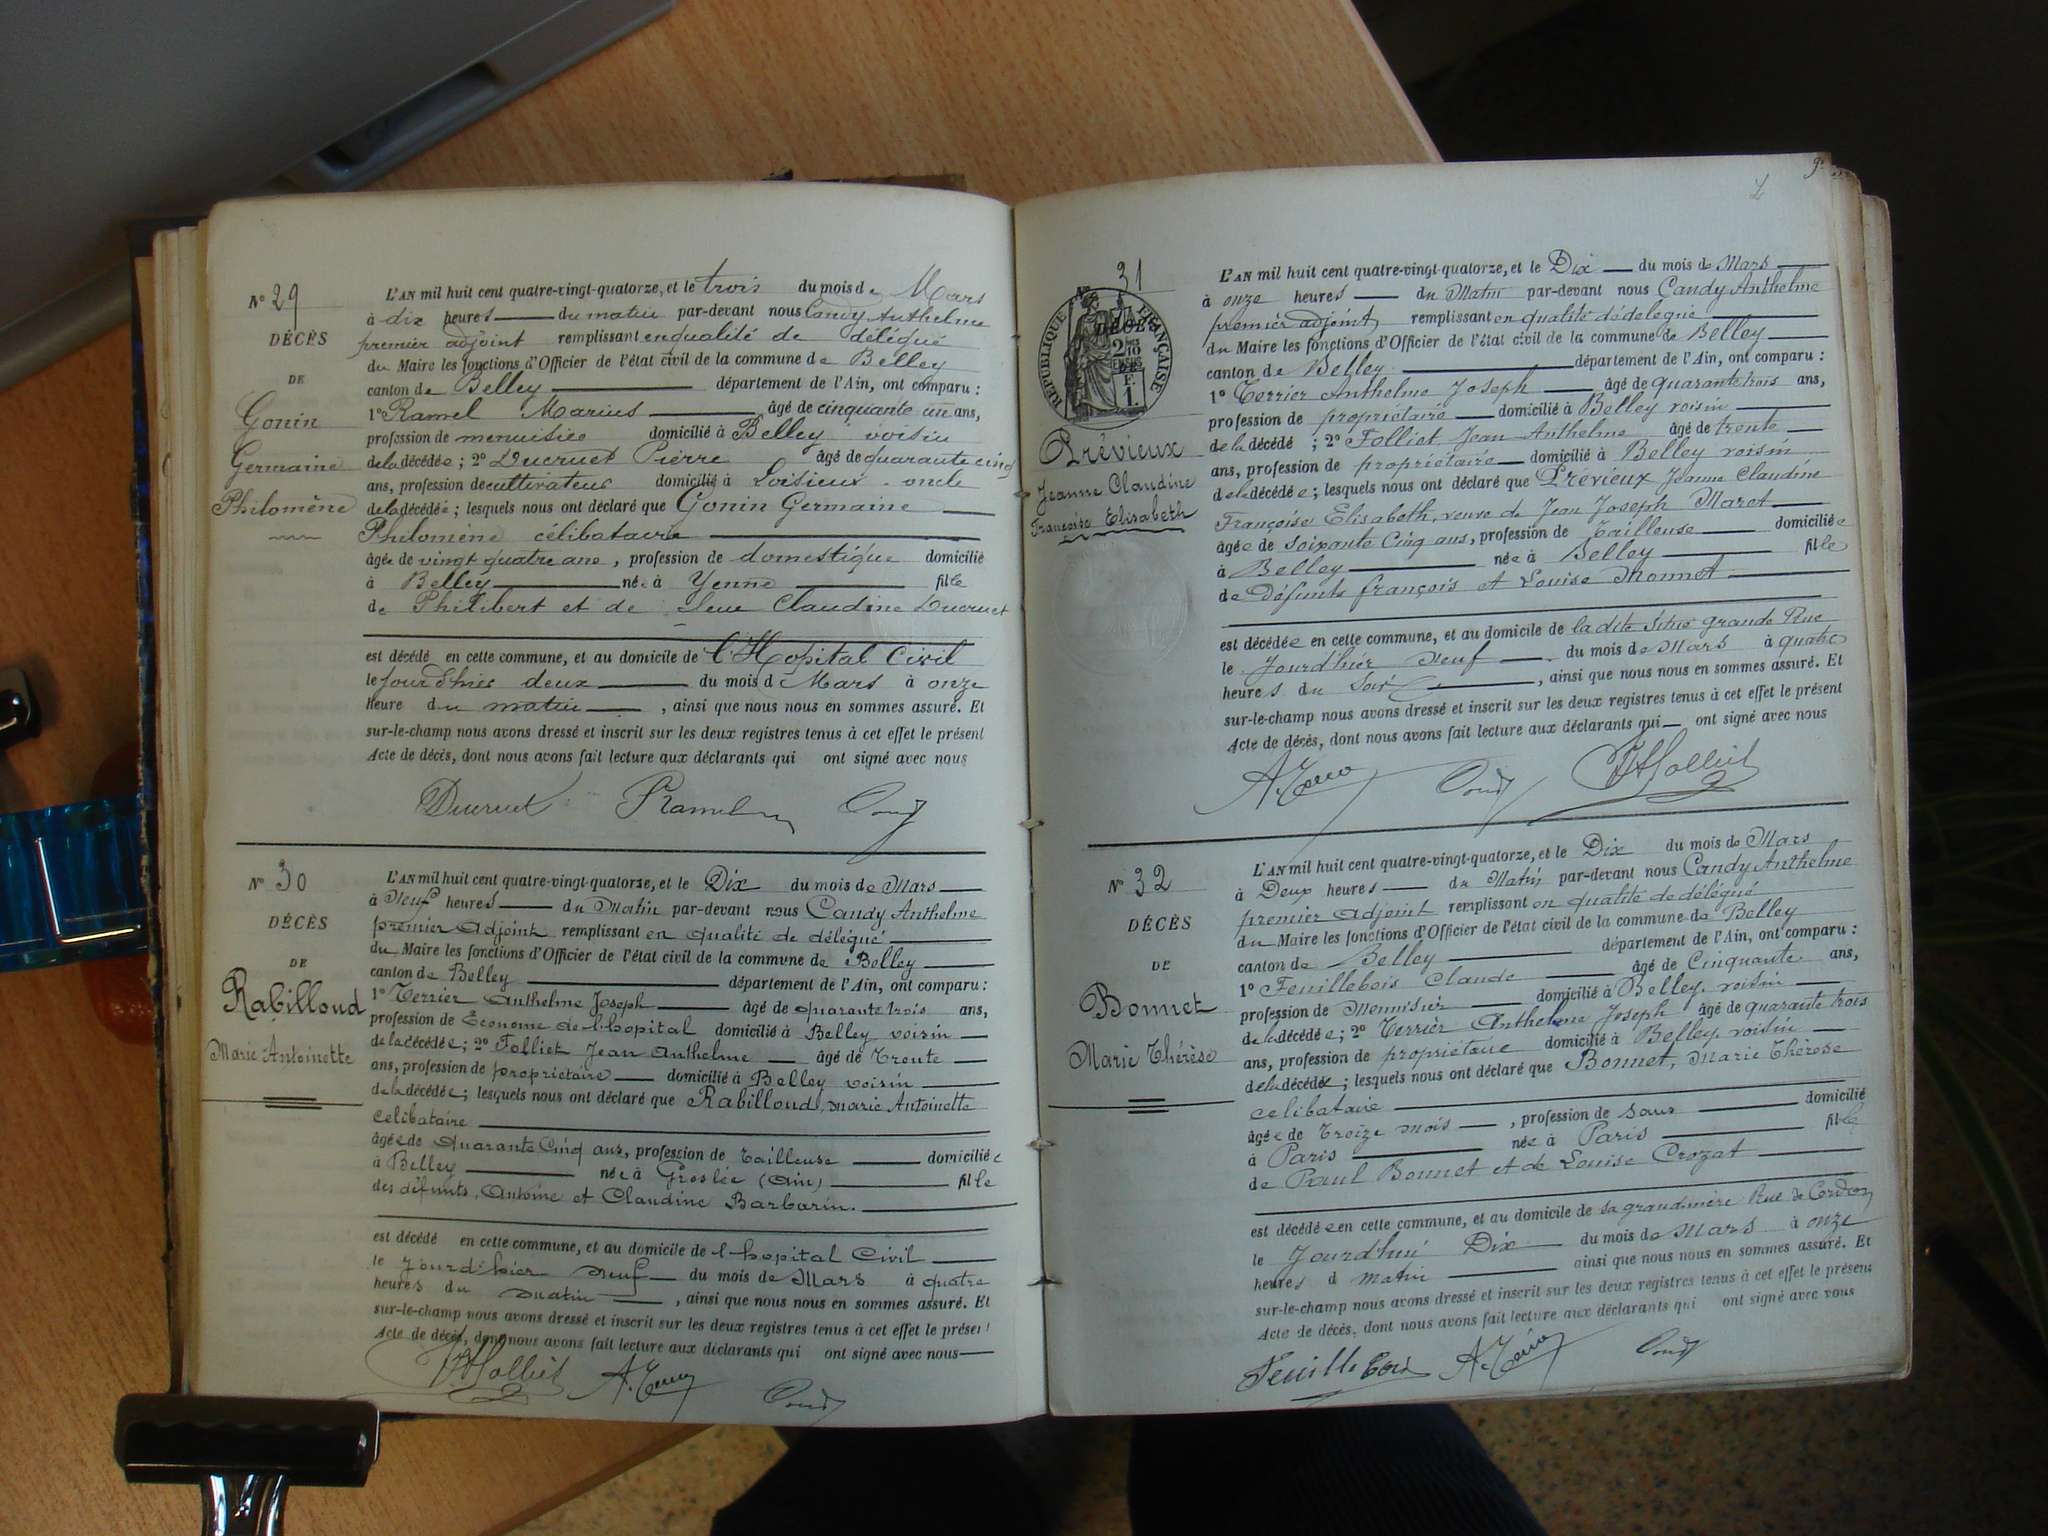 N° 29
DÉCÈS
DE
Gonin
Germaine
Philomène
L'AN mil huit cent quatre-vingt-quatorze, et le trois du mois de Mars
à dix heures du matin par-devant nous Candy Anthelme
premier adjoint remplissant en qualité de délégué
du Maire les fonctions d'Officier de l'état civil de la commune de Belley
canton de Belley département de l'Ain, ont comparu :
1° Ramel Marius âgé de cinquante un ans,
profession de menuisier domicilié à Belley voisin
de la décédée ; 2° Ducruet Pierre âgé de quarante cinq
ans, profession de cultivateur domicilié à Loisieux oncle
de la décédée ; lesquels nous ont déclaré que Gonin Germaine
Philomène célibataire
âgée de vingt quatre ans, profession de domestique domicilié
à Belley née à Yenne fille
de Philibert et de feue Claudine Ducruet
est décédé en cette commune, et au domicile de l'Hopital Civil
le jour d'hier deux du mois de Mars à onze
heure du matin, ainsi que nous nous en sommes assuré. Et
sur-le-champ nous avons dressé et inscrit sur les deux registres tenus à cet effet le présent
Acte de décès, dont nous avons fait lecture aux déclarants qui ont signé avec nous
Ducruet Ramel Candy
N° 30
DÉCÈS
DE
Rabilloud
Marie Antoinette
L'AN mil huit cent quatre-vingt-quatorze, et le Dix du mois de Mars
à Neuf heures du Matin par-devant nous Candy Anthelme
premier Adjoint remplissant en qualité de délégué
du Maire les fonctions d'Officier de l'état civil de la commune de Belley
canton de Belley département de l'Ain, ont comparu :
1° Terrier Anthelme Joseph âgé de quarante trois ans,
profession de Econome de l'hopital domicilié à Belley voisin
de la décédée ; 2° Folliet Jean Anthelme âgé de Trente
ans, profession de propriétaire domicilié à Belley voisin
de la décédée ; lesquels nous ont déclaré que Rabilloud, Marie Antoinette
celibataire
âgée de Quarante Cinq ans, profession de tailleuse domiciliée
à Belley née à Groslée (Ain) fille
des défunts, Antoine et Claudine Barbarin.
est décédé en cette commune, et au domicile de l'hopital Civil
le Jour d'hier Neuf du mois de Mars à quatre
heures du matin, ainsi que nous nous en sommes assuré. Et
sur-le-champ nous avons dressé et inscrit sur les deux registres tenus à cet effet le présent
Acte de décès, dont nous avons fait lecture aux déclarants qui ont signé avec nous
JAFolliet A. Terrier Candy
9
31
RÉPUBLIQUE FRANÇAISE
2/10
EN SUS
F.
1.
Prévieux
Jeanne Claudine
Françoise Elisabeth
L'AN mil huit cent quatre-vingt-quatorze, et le Dix du mois de Mars
à onze heures du Matin par-devant nous Candy Anthelme
premier adjoint remplissant en qualité de délégué
du Maire les fonctions d'Officier de l'état civil de la commune de Belley
canton de Belley département de l'Ain, ont comparu :
1° Terrier Anthelme Joseph âgé de quarante trois ans,
profession de propriétaire domicilié à Belley voisin
de la décédé ; 2° Folliet, Jean Anthelme âgé de trente
ans, profession de propriétaire domicilié à Belley voisin
de la décédée ; lesquels nous ont déclaré que Prévieux Jeanne Claudine
Françoise Elisabeth, veuve de Jean Joseph Maret
âgée de soixante cinq ans, profession de Tailleuse domiciliée
à Belley née à Belley fille
de Défunts françois et Louise Monnet
est décédée en cette commune, et au domicile de la dite situé grande Rue
le Jour d'hier Neuf du mois de Mars à quatre
heures du Soir, ainsi que nous nous en sommes assuré. Et
sur-le-champ nous avons dressé et inscrit sur les deux registres tenus à cet effet le présent
Acte de décès, dont nous avons fait lecture aux déclarants qui ont signé avec nous
A. Terrier Candy JAFolliet
N° 32
DÉCÈS
DE
Bonnet
Marie Thérèse
L'AN mil huit cent quatre-vingt-quatorze, et le Dix du mois de Mars
à Deux heures du Matin par-devant nous Candy Anthelme
premier Adjoint remplissant en qualité de délégué
du Maire les fonctions d'Officier de l'état civil de la commune de Belley
canton de Belley département de l'Ain, ont comparu :
1° Feuillebois Claude âgé de Cinquante ans,
profession de Menuisier domicilié à Belley, voisin
de la décédée ; 2° Terrier Anthelme Joseph âgé de quarante trois
ans, profession de propriétaire domicilié à Belley, voisin
de la décédée ; lesquels nous ont déclaré que Bonnet, Marie Thérèse
celibataire
âgée de Treize mois, profession de sans domicilié
à Paris née à Paris fille
de Paul Bonnet et de Louise Crozat
est décédée en cette commune, et au domicile de sa grandmère Rue de Cordon
le Jourd'hui Dix du mois de Mars à onze
heures d matin ainsi que nous nous en sommes assuré. Et
sur-le-champ nous avons dressé et inscrit sur les deux registres tenus à cet effet le présent
Acte de décès, dont nous avons fait lecture aux déclarants qui ont signé avec nous
Feuillebois A. Terrier Candy